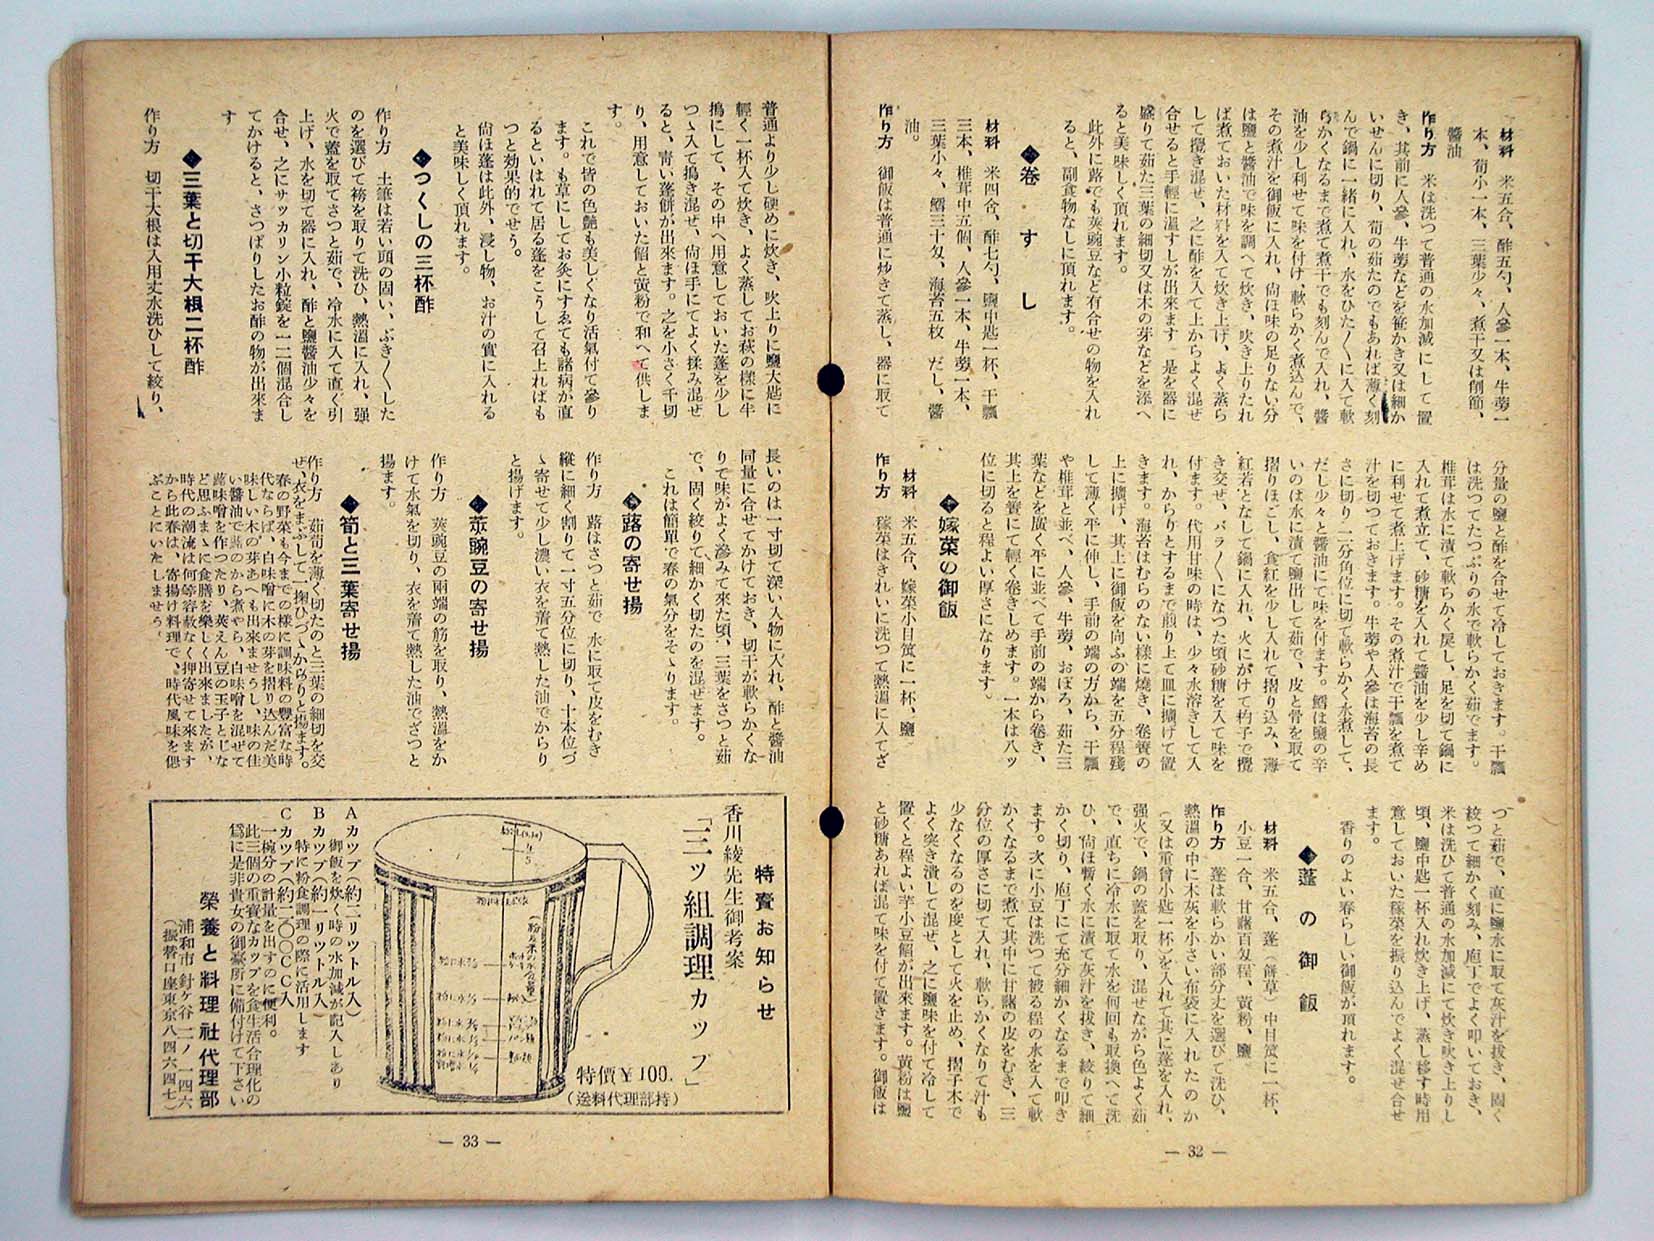 材料　米五合、酢五勺、人參一本、牛蒡一
本、筍小一本、三葉少々、煮干又は削節、
醬油
作り方　米は洗つて普通の水加減にして置
き、其前に人參、牛蒡などを笹かき又は細か
いせんに切り、筍の茹たのでもあれば薄く刻
んで鍋に一緒に入れ、水をひた〳〵に入て軟
らかくなるまで煮て煮干でも刻んで入れ、醬
油を少し利せて味を付け、軟らかく煮込んで、
その煮汁を御飯に入れ、尙ほ味の足りない分
は鹽と醬油で味を調へて炊き、吹き上りたれ
ば煮ておいた材料を入て炊き上げ、よく蒸ら
して攪き混ぜ、之に酢を入て上からよく混ぜ
合せると手輕に溫すしが出來ます　是を器に
盛りて茹た三葉の細切又は木の芽などを添へ
ると美味しく頂れます。
此外に蕗でも莢豌豆など有合せの物を入れ
ると、副食物なしに頂れます。
◆卷すし
材料　米四合、酢七勺、鹽中匙一杯、干瓢
三本、椎茸中五個、人參一本、牛蒡一本、
三葉小々、鱈三十匁、海苔五枚　だし、醬
油。
作り方　御飯は普通に炒きて蒸し、器に取て
分量の鹽と酢を合せて冷しておきます。干瓢
は洗つてたつぷりの水で軟らかく茹でます。
椎茸は水に漬て軟らかく戾し、足を切て鍋に
入れて煮立て、砂糖を入れて醬油を少し辛め
に利せて煮上げます。その煮汁で干瓢を煮て
汁を切つておきます。牛蒡や人參は海苔の長
さに切り、二分角位に切て軟らかく水煮して、
だし少々と醬油にて味を付ます。鱈は鹽の辛
いのは水に漬て鹽出して茹で、皮と骨を取て
摺りほごし、食紅を少し入れて摺り込み、薄
紅若となして鍋に入れ、火にがけて杓子で攪
き交ぜ、パラ〳〵になつた頃砂糖を入て味を
付ます。代用甘味の時は、少々水溶きして入
れ、からりとするまで煎り上て皿に擴げて置
きます。海苔はむらのない樣に燒き、卷簀の
上に擴げ、其上に御飯を向ふの端を五分程殘
して薄く平に伸し、手前の端の方から、干瓢
や椎茸と並べ、人參、牛蒡、おぼろ、茹た三
葉などを廣く平に並べて手前の端から卷き、
其上を簀にて輕く卷きしめます。一本は八ッ
位に切ると程よい厚さになります。
◆嫁菜の御飯
材料　米五合、嫁菜小目笊に一杯、鹽
作り方　嫁菜はきれいに洗つて熱溫に入てざ
つと茹で、直に鹽水に取て灰汁を拔き、固く
絞つて細かく刻み、庖丁でよく叩いておき、
米は洗ひて普通の水加減にて炊き吹き上りし
頃、鹽中匙一杯入れ炊き上げ、蒸し移す時用
意しておいた嫁菜を振り込んでよく混ぜ合せ
ます。
香りのよい春らしい御飯が頂れます。
◆蓬の御飯
材料　米五合、蓬（餠草）中目笊に一杯、
小豆一合、甘藷百匁程、黃粉、鹽
作り方　蓬は軟らかい部分丈を選びて洗ひ、
熱溫の中に木灰を小さい布袋に入れたのか
（又は重曹小匙一杯）を入れて其に蓬を入れ、
强火で、鍋の蓋を取り、混せながら色よく茹
で、直ちに冷水に取て水を何回も取換へて洗
ひ、尙ほ暫く水に漬て灰汁を拔き、絞りて細
かく切り、庖丁にて充分細かくなるまで叩き
ます。次に小豆は洗つて被る程の水を入て軟
かくなるまで煮て其中に甘藷の皮をむき、三
分位の厚さに切て入れ、軟らかくなりて汁も
少なくなるのを度として火を止め、摺子木で
よく突き潰して混ぜ、之に鹽味を付て冷して
置くと程よい芋小豆餡が出來ます。黃粉は鹽
と砂糖あれば混て味を付て置きます。御飯は
— 32 —
普通より少し硬めに炊き、吹上りに鹽大匙に
輕く一杯入て炊き、よく蒸してお萩の樣に半
搗にして、その中へ用意しておいた蓬を少し
つゝ入て搗き混ぜ、尙ほ手にてよく揉み混ぜ
ると、靑い蓬餠が出來ます。之を小さく千切
り、用意しておいた餡と黃粉で和へて供しま
す。
これで皆の色艷も美しくなり活氣付て參り
ます。も草にしてお灸にすゑても諸病が直
るといはれて居る蓬をこうして召上ればも
つと効果的でせう。
尙ほ蓬は此外、浸し物、お汁の實に入れる
と美味しく頂れます。
◆つくしの三杯酢
作り方　土筆は若い頭の固い、ぶき〳〵した
のを選びて袴を取りて洗ひ、熱溫に入れ、强
火で蓋を取てさつと茹で、冷水に入て直ぐ引
上げ、水を切て器に入れ、酢と鹽醬油少々を
合せ、之にサッカリン小粒錠を一二個混合し
てかけると、さつぱりしたお酢の物が出來ま
す
◆三葉と切干大根二杯酢
作り方　切干大根は入用丈水洗ひして絞り、
長いのは一寸切て深い入物に入れ、酢と醬油
同量に合せてかけておき、切干が軟らかくな
りて味がよく滲みて來た頃、三葉をさつと茹
で、固く絞りて細かく切たのを混ぜます。
これは簡單で春の氣分をそゝります。
◆蕗の寄せ揚
作り方　蕗はさつと茹で　水に取て皮をむき
縱に細く割りて一寸五分位に切り、十本位づ
ゝ寄せて少し濃い衣を着て熱した油でからり
と揚げます。
◆莢豌豆の寄せ揚
作り方　莢豌豆の兩端の筋を取り、熱溫をか
けて水氣を切り、衣を着て熱した油でざつと
揚ます。
◆筍と三葉寄せ揚
作り方　茹筍を薄く切たのと三葉の細切を交
ぜ、衣をまぶして一掬ひづゝからりと揚ます。
春の野菜も今までの樣に調味料の豐富な時
代ならば、白味噌に木の芽を摺り込んだ美
味しい木の芽あへも出來ませうし、味の佳
い醬油で蕗のから煮やら、白味噌を混ぜて
蕗味噌を作つたり、莢えん豆の玉子とじな
ど思ふまゝに食膳を樂しく出來ましたが、
時代の潮流は何等容赦なく押寄せて來ます
から此春は、寄揚げ料理で、時代風味を偲
ぶことにいたしませう。
特賣お知らせ
香川綾先生御考案
「三ッ組調理カップ」
特價￥100.
（送料代理部持）
Aカップ（約二リットル入）
御飯を炊く時の水加減が記入しあり
Bカップ（約一リットル入）
特に粉食調理の際に活用します
Cカップ（約二〇〇CC入
一椀分の計量を出すのに便利。
此三個の重寶なカップを食生活合理化の
爲に是非貴女の御臺所に備付けて下さい
榮養と料理社代理部
浦和市針ヶ谷二ノ一四六
（振替口座東京八四六四七）
— 33 —